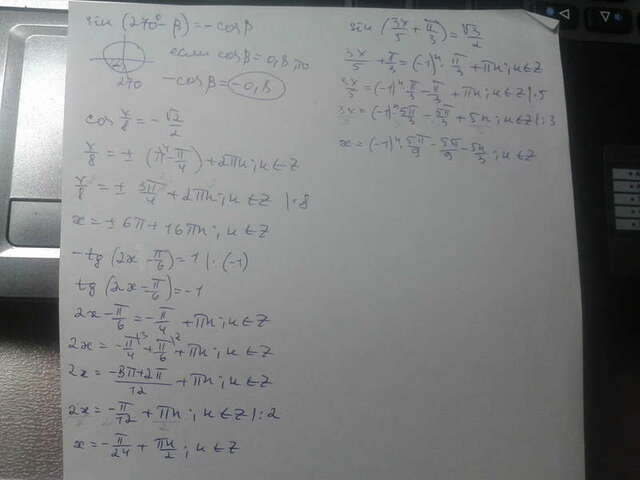 sin (270° - β) = -cosβ
если cosβ = 0,8, то
270
-cosβ = -0,8
cos x/8 = - √2/2
x/8 = ± (π - π/4) + 2πn; n ∈ Z
x/8 = ± 3π/4 + 2πn; n ∈ Z |·8
x = ± 6π + 16πn; n ∈ Z
-tg (2x - π/6) = 1 |·(-1)
tg (2x - π/6) = -1
2x - π/6 = -π/4 + πn; n ∈ Z
2x = -π/4 \3 + π/6 \2 + πn; n ∈ Z
2x = (-3π+2π)/12 + πn; n ∈ Z
2x = -π/12 + πn; n ∈ Z |:2
x = -π/24 + πn/2; n ∈ Z
sin (3x/5 + π/3) = √3/2
3x/5 + π/3 = (-1)ⁿ · π/3 + πn; n ∈ Z
3x/5 = (-1)ⁿ π/3 - π/3 + πn; n ∈ Z |·5
3x = (-1)ⁿ 5π/3 - 5π/3 + 5n; n ∈ Z |:3
x = (-1)ⁿ · 5π/9 - 5π/9 - 5n/3; n ∈ Z